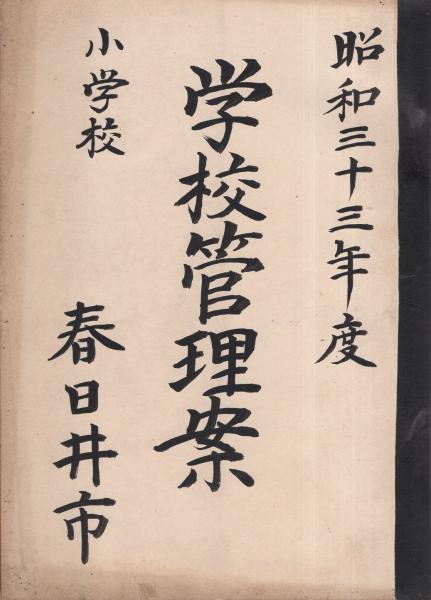 昭和三十三年度
学校管理案
小学校
春日井市